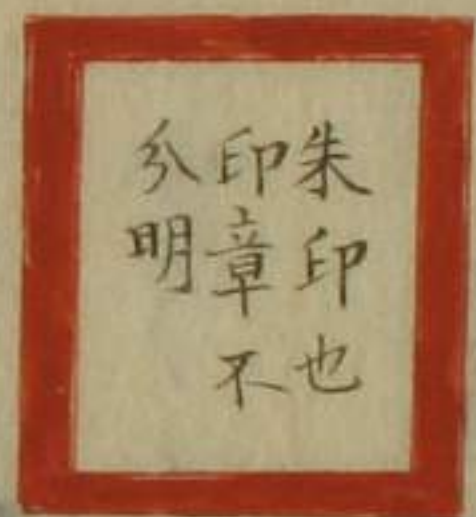 朱印也
印章不
分明